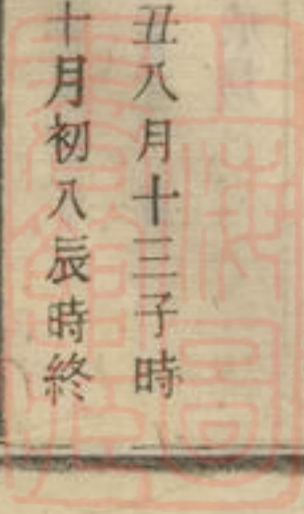 丑八月十三子時
十月初八辰時終